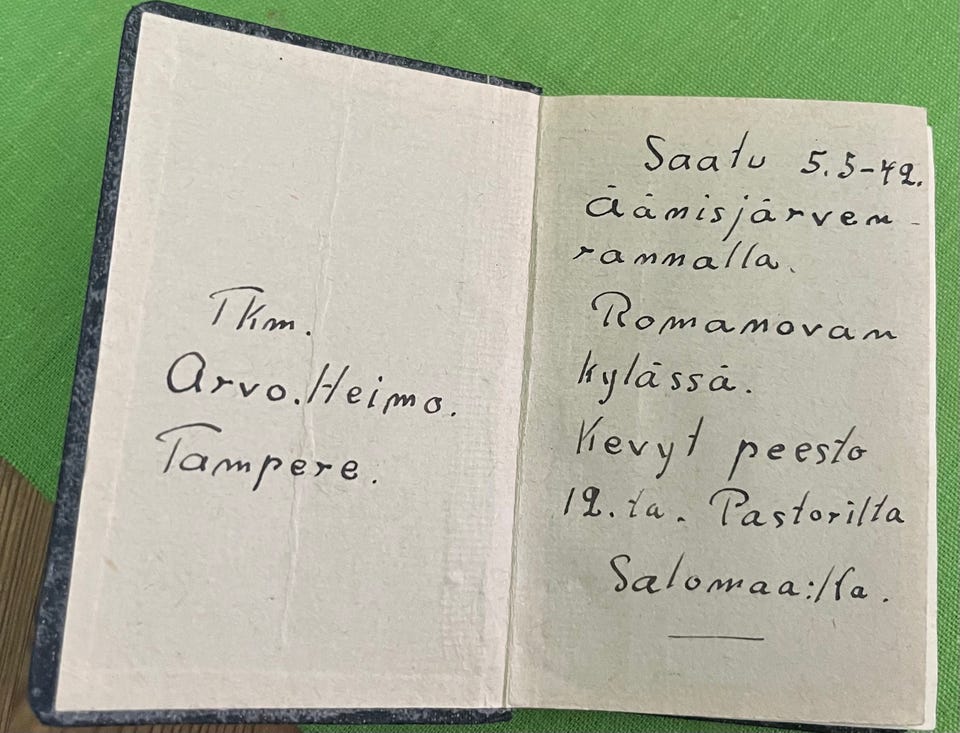 Tkm.
Arvo. Heimo.
Tampere.
Saatu 5.5-42.
Äänisjärven
rannalla.
Romanovan
kylässä.
Kevyt peesto
12.ta. Pastorilta
Salomaa:lta.